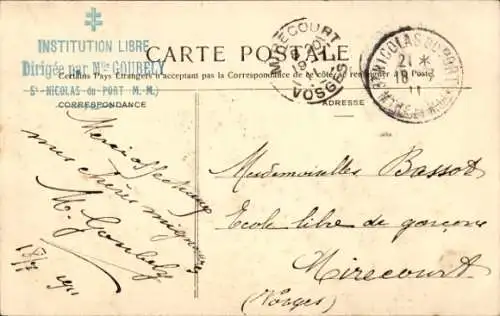 INSTITUTION LIBRE
Dirigée par Mlle GOUBELY
St-NICOLAS-du-PORT (M.-M.)
CARTE POSTALE
Certains Pays Étrangers n'acceptant pas la Correspondance de ce côté, se renseigner à la Poste
CORRESPONDANCE
ADRESSE
MIRECOURT
VOSGES
ST NICOLAS DU PORT
21 *
18
11
Merci affectueux
mes chères mignonnes
M. Goubely
1911
Mesdemoiselles Bassot
Ecole libre de garçons
Mirecourt
(Vosges)